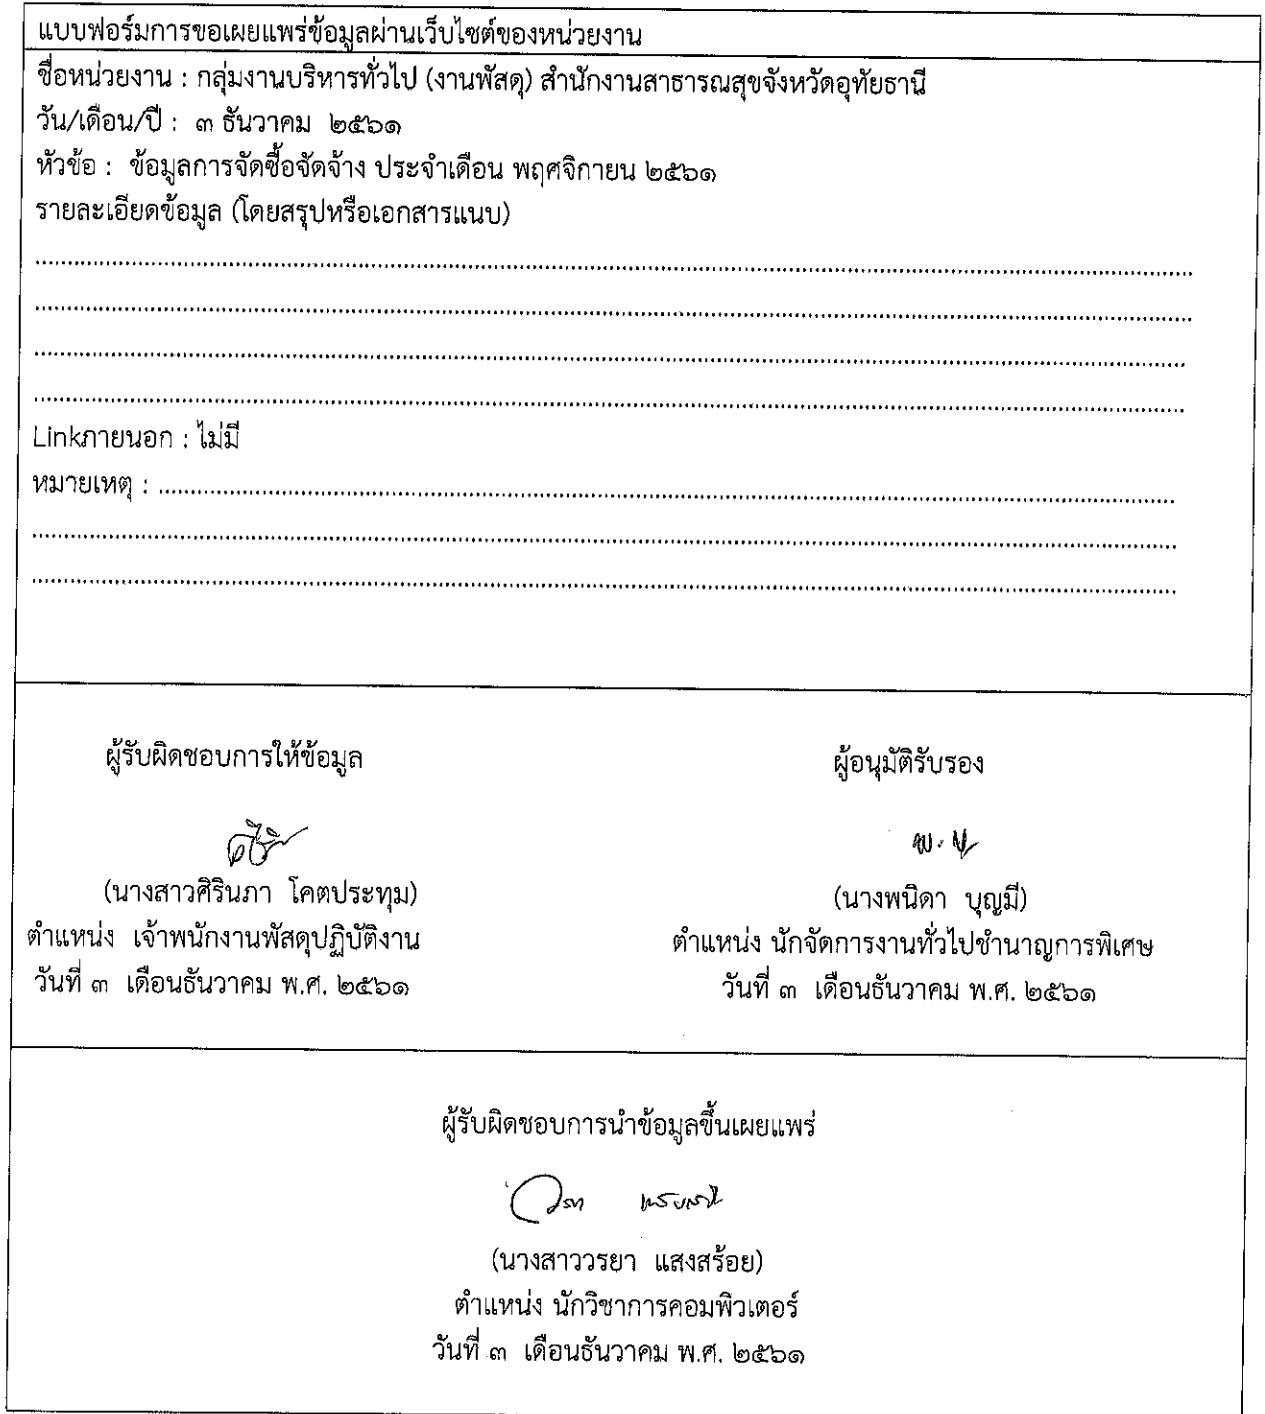 แบบฟอร์มการขอเผยแพร่ข้อมูลผ่านเว็บไซต์ของหน่วยงาน
ชื่อหน่วยงาน : กลุ่มงานบริหารทั่วไป (งานพัสดุ) สำนักงานสาธารณสุขจังหวัดอุทัยธานี
วัน/เดือน/ปี : ๓ ธันวาคม ๒๕๖๑
หัวข้อ : ข้อมูลการจัดซื้อจัดจ้าง ประจำเดือน พฤศจิกายน ๒๕๖๑
รายละเอียดข้อมูล (โดยสรุปหรือเอกสารแนบ)
Linkภายนอก : ไม่มี
หมายเหตุ :
ผู้รับผิดชอบการให้ข้อมูล
(นางสาวศิรินภา โคตประทุม)
ตำแหน่ง เจ้าพนักงานพัสดุปฏิบัติงาน
วันที่ ๓ เดือนธันวาคม พ.ศ. ๒๕๖๑
ผู้อนุมัติรับรอง
พ. บ
(นางพนิดา บุญมี)
ตำแหน่ง นักจัดการงานทั่วไปชำนาญการพิเศษ
วันที่ ๓ เดือนธันวาคม พ.ศ. ๒๕๖๑
ผู้รับผิดชอบการนำข้อมูลขึ้นเผยแพร่
(นางสาววรยา แสงสร้อย)
ตำแหน่ง นักวิชาการคอมพิวเตอร์
วันที่ ๓ เดือนธันวาคม พ.ศ. ๒๕๖๑